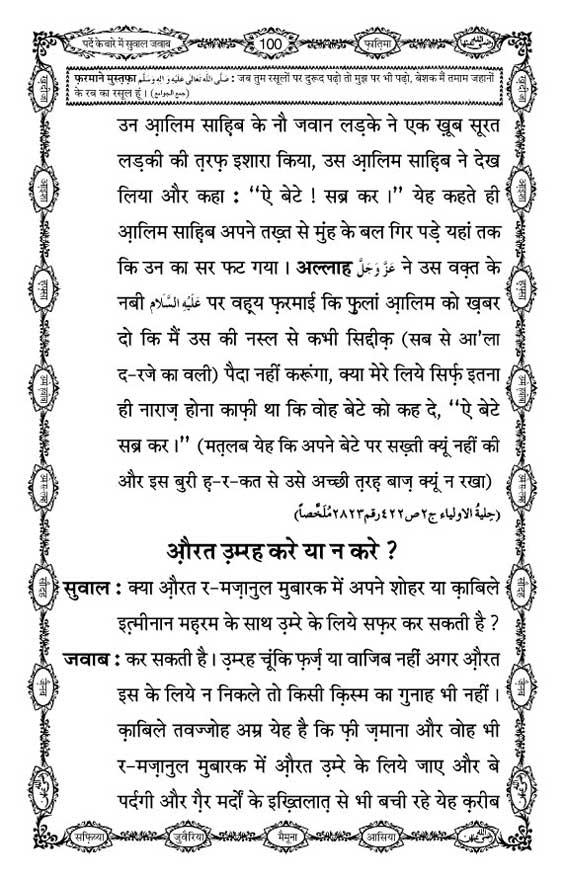 पर्दे के बारे में सुवाल जवाब
100
फ़ातिमा
फ़रमाने मुस्त़फ़ा صَلَّی اللہُ تَعَالٰی عَلَیْہِ وَاٰلِہٖ وَسَلَّم : जब तुम रसूलों पर दुरूद पढ़ो तो मुझ पर भी पढ़ो, बेशक मैं तमाम जहानों
के रब का रसूल हूं। (جمع الجوامع)
उन आ़लिम साह़िब के नौ जवान लड़के ने एक ख़ूब सूरत
लड़की की त़रफ़ इशारा किया, उस आ़लिम साह़िब ने देख
लिया और कहा : ‘‘ऐ बेटे ! सब्र कर ।’’ येह कहते ही
आ़लिम साह़िब अपने तख़्त से मुंह के बल गिर पड़े यहां तक
कि उन का सर फट गया । अल्लाह عَزَّوَجَلَّ ने उस वक़्त के
नबी عَلَيْهِ السَّلَام पर वह़्य फ़रमाई कि फ़ुलां आ़लिम को ख़बर
दो कि मैं उस की नस्ल से कभी सिद्दीक़ (सब से आ'ला
द-रजे का वली) पैदा नहीं करूंगा, क्या मेरे लिये सिर्फ़ इतना
ही नाराज़ होना काफ़ी था कि वोह बेटे को कह दे, ‘‘ऐ बेटे
सब्र कर ।’’ (मत़लब येह कि अपने बेटे पर सख़्ती क्यूं नहीं की
और इस बुरी ह़-र-कत से उसे अच्छी त़रह़ बाज़ क्यूं न रखा)
(حِلیۃُ الاولیاء ج۲ص۴۲۲رقم۲۸۲۳مُلَخَّصاً)
औ़रत उ़म्रह करे या न करे ?
सुवाल : क्या औ़रत र-मज़ानुल मुबारक में अपने शोहर या क़ाबिले
इत़्मीनान मह़रम के साथ उ़म्रे के लिये सफ़र कर सकती है ?
जवाब : कर सकती है । उ़म्रह चूंकि फ़र्ज़ या वाजिब नहीं अगर औ़रत
इस के लिये न निकले तो किसी क़िस्म का गुनाह भी नहीं ।
क़ाबिले तवज्जोह अम्र येह है कि फ़ी ज़माना और वोह भी
र-मज़ानुल मुबारक में औ़रत उ़म्रे के लिये जाए और बे
पर्दगी और ग़ैर मर्दों के इख़्तिलात़ से भी बची रहे येह क़रीब
सफ़िय्या
जुवैरिया
मैमूना
आसिया